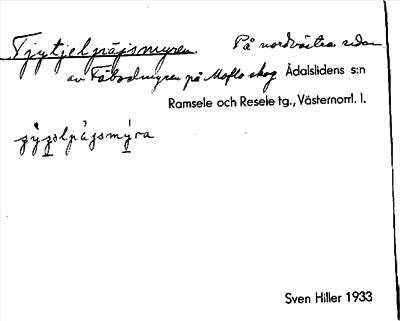 Tjytjelpåjsmyren. På nordvästra sidan
av Fäbodmyren på Moflo skog Ådalslidens s:n
Ramsele och Resele tg., Västernorrl. l.
Sven Hiller 1933